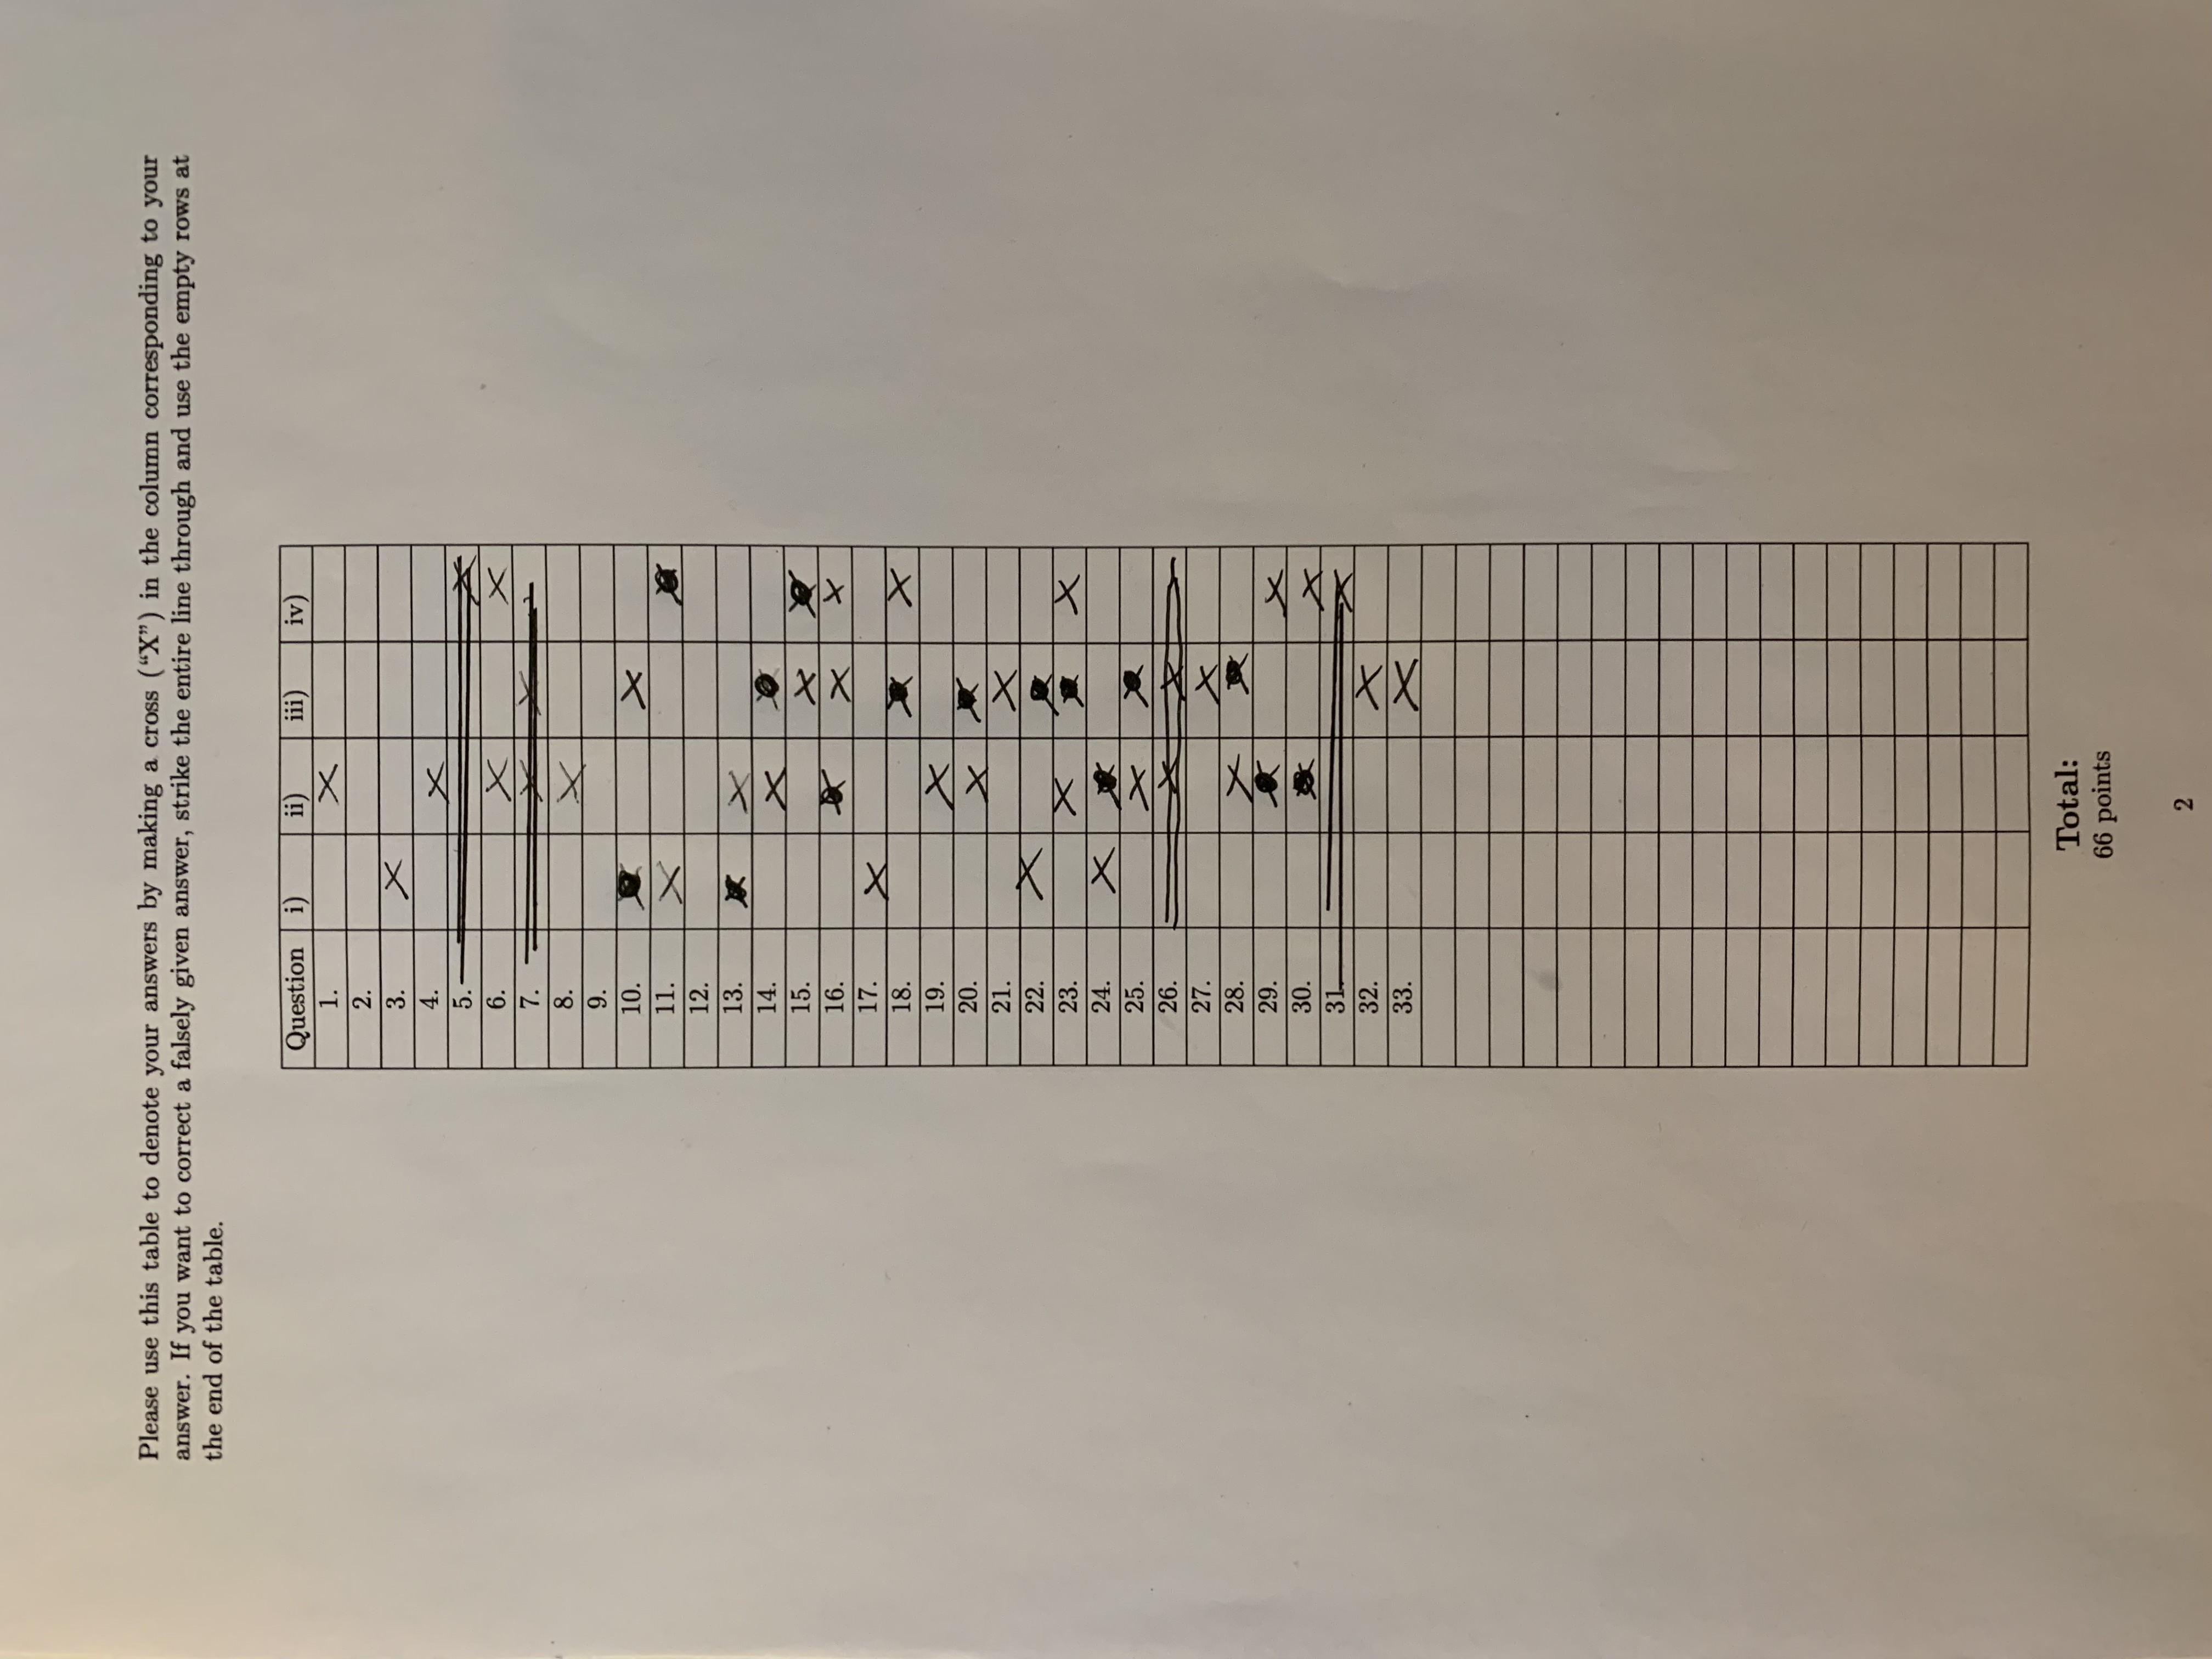 Please use this table to denote your answers by making a cross (“X”) in the column corresponding to your
answer. If you want to correct a falsely given answer, strike the entire line through and use the empty rows at
the end of the table.
Question i) ii) iii) iv)
1. X
2.
3. X
4. X
5. X
6. X X
7. X X
8. X
9.
10. X X
11. X X
12.
13. X X
14. X X
15. X X
16. X X X
17. X
18. X X
19. X
20. X X
21. X
22. X X
23. X X X
24. X X
25. X X
26. X X
27. X
28. X X
29. X X
30. X X
31. X
32. X
33. X
Total:
66 points
2